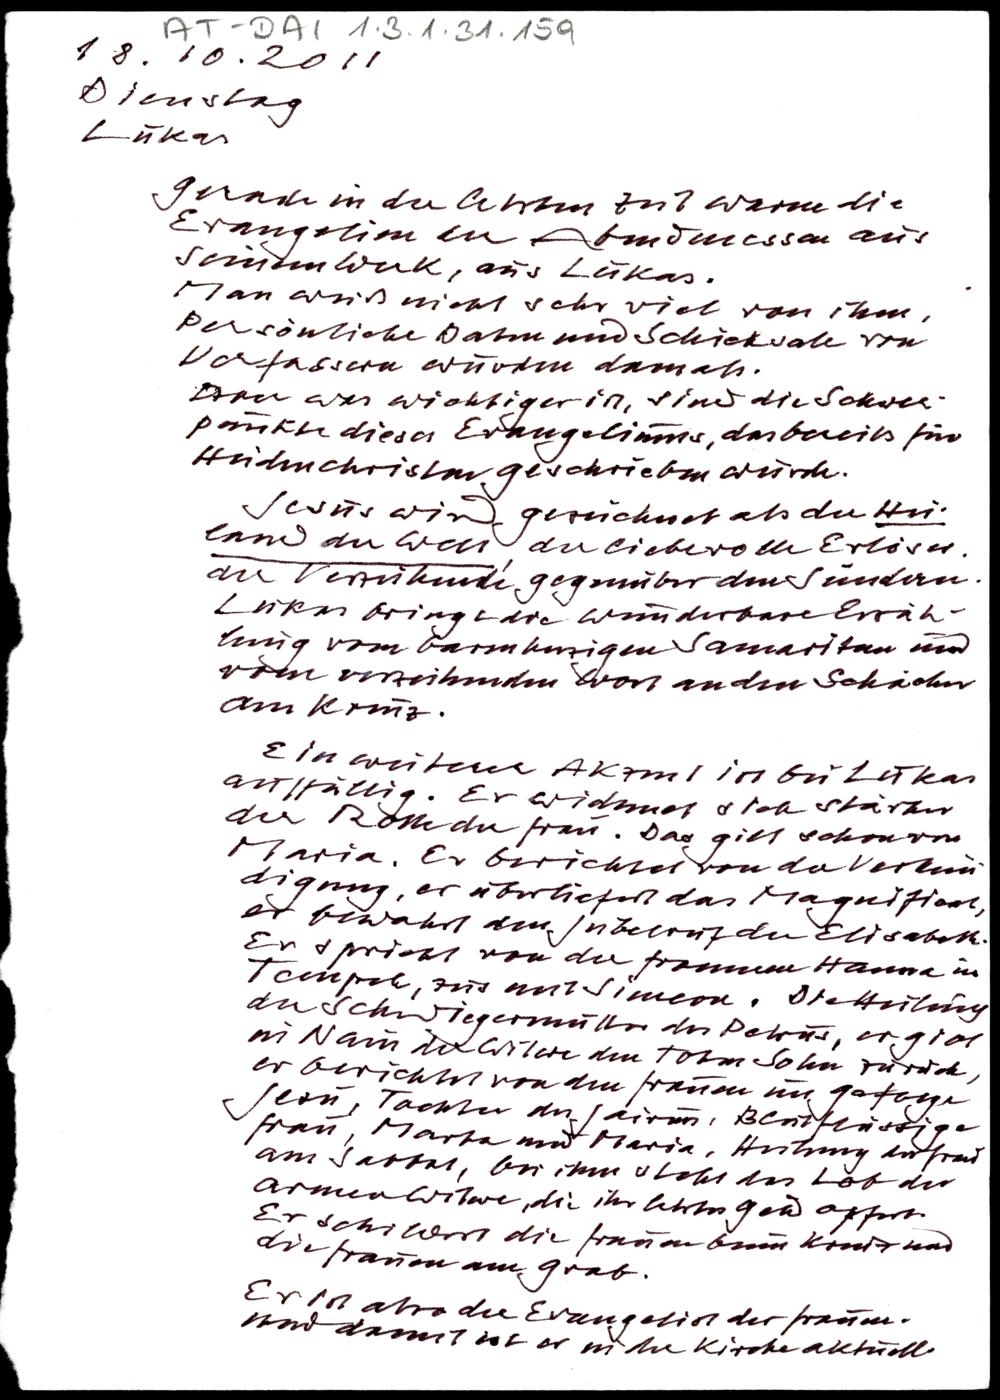 AT-DAI 1.3.1.31.159
18.10.2011
Dienstag
Lukas
Gerade in der letzten Zeit waren die
Evangelien der Abendmessen aus
seinem Werk, aus Lukas.
Man weiß nicht sehr viel von ihm,
Persönliche Daten und Schicksale von
Verfassern wurden damals.
Aber was wichtiger ist, sind die Schwer-
punkte dieses Evangeliums, das bereits für
Heidenchristen geschrieben wurde.
Jesus wird gezeichnet als der Hei-
land der Welt, der liebevolle Erlöser.
der Verzeihende gegenüber den Sündern.
Lukas bringt die wunderbare Erzäh-
lung vom barmherzigen Samaritan und
vom verzeihenden Wort an den Schächer
am Kreuz.
Ein weiterer Akzent ist bei Lukas
auffällig. Er widmet sich stärker
der Rolle der Frau. Das gilt schon von
Maria. Er berichtet von der Verkün
digung, er überliefert das Magnificat,
er bewahrt den Jubelruf der Elisabeth.
Er spricht von der frommen Hanna im
Tempel, zus mit Simeon. Die Heilung
der Schwiegermutter des Petrus, er gibt
in Nain der Witwe den toten Sohn zurück,
er berichtet von den Frauen im Gefolge
Jesu, Tochter des Jairus, Blutflüssige
Frau, Marta und Maria, Heilung der Frau
am Sabbat, bei ihm steht das Lob der
armen Witwe, die ihr letztes Geld opfert.
Er schildert die Frauen beim Kreuz und
die Frauen am Grab.
Er ist also der Evangelist der Frauen.
und damit ist er in der Kirche aktuell.